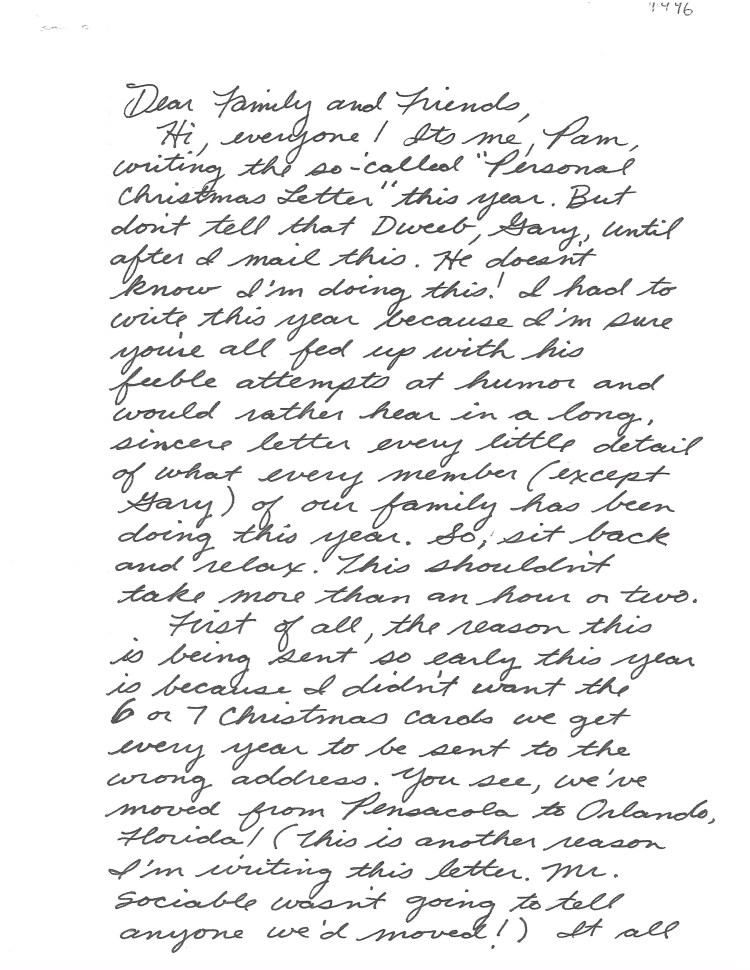 1996
Dear Family and Friends,
Hi, everyone! Its me, Pam,
writing the so-called "Personal
Christmas Letter" this year. But
don't tell that Dweeb, Gary, until
after I mail this. He doesn't
know I'm doing this! I had to
write this year because I'm sure
you're all fed up with his
feeble attempts at humor and
would rather hear in a long,
sincere letter every little detail
of what every member (except
Gary) of our family has been
doing this year. So, sit back
and relax. This shouldn't
take more than an hour or two.
First of all, the reason this
is being sent so early this year
is because I didn't want the
6 or 7 Christmas cards we get
every year to be sent to the
wrong address. You see, we've
moved from Pensacola to Orlando,
Florida! (This is another reason
I'm writing this letter. Mr.
Sociable wasn't going to tell
anyone we'd moved!) It all